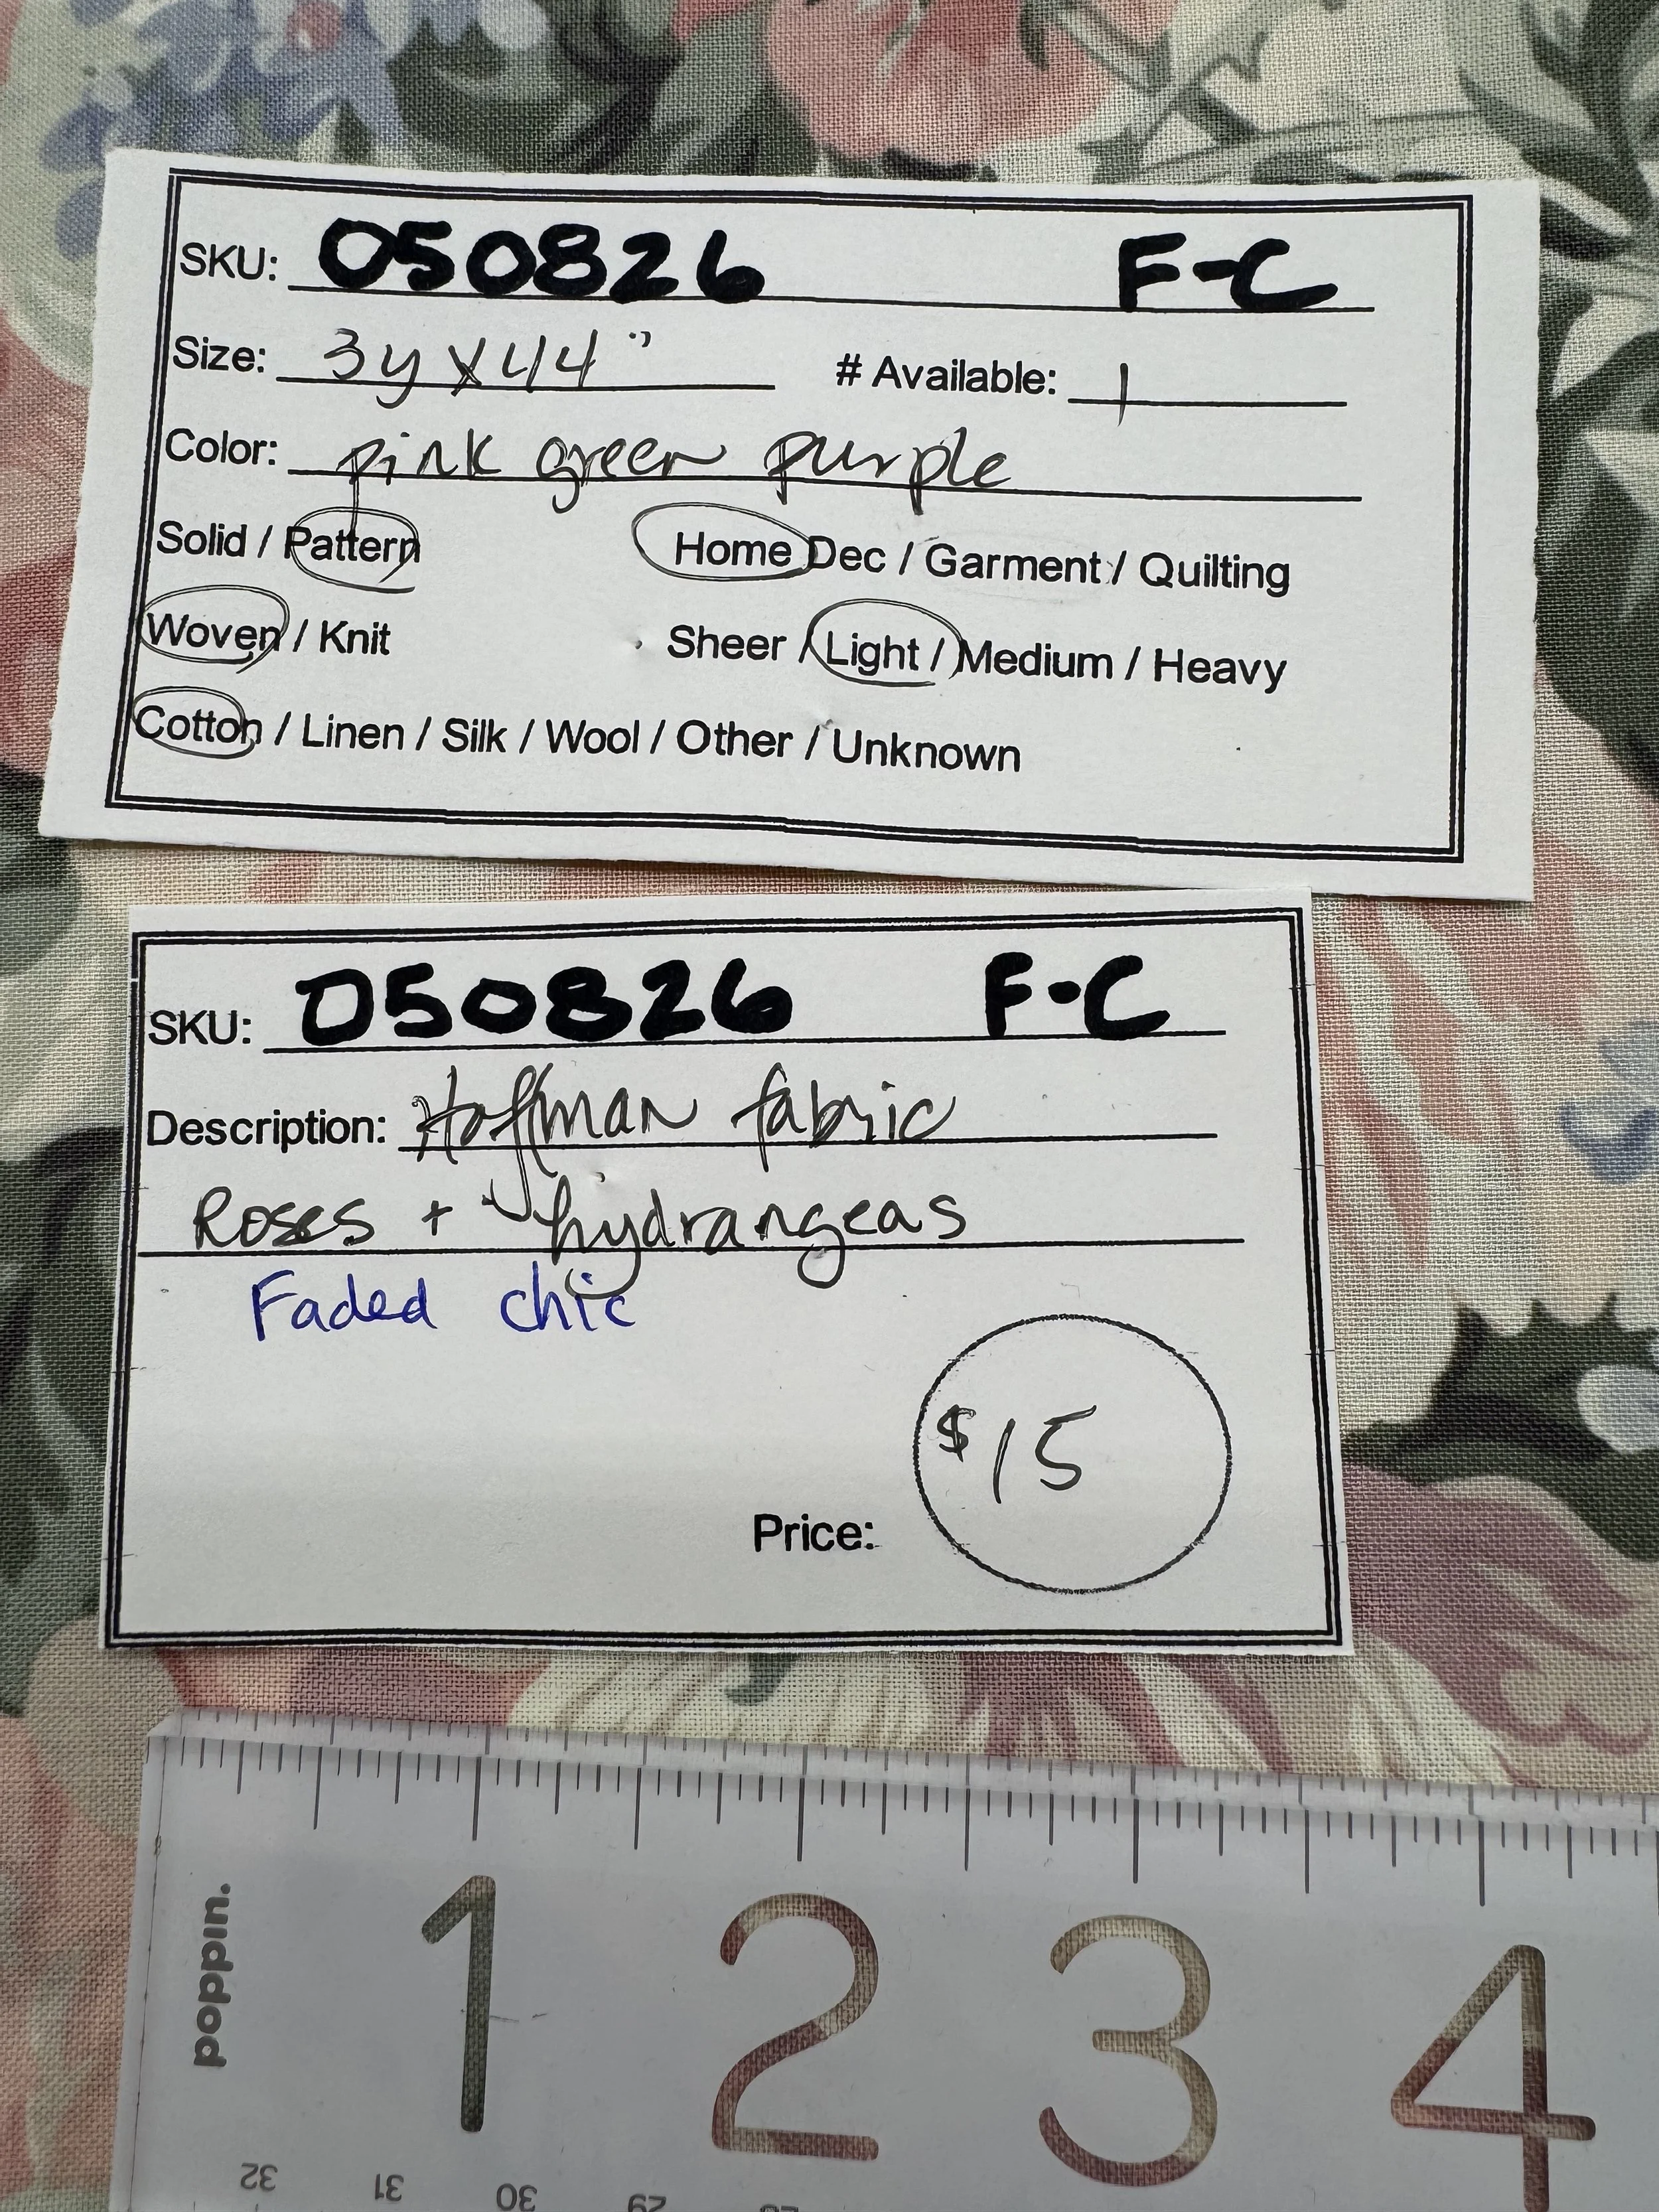 SKU: 050826 F-C
Size: 3y x 44" # Available: 1
Color: pink green purple
Solid / Pattern Home Dec / Garment / Quilting
Woven / Knit Sheer / Light / Medium / Heavy
Cotton / Linen / Silk / Wool / Other / Unknown
SKU: 050826 F-C
Description: Hoffman fabric
Roses + hydrangeas
Faded chic
$15
Price:
poppin.
1 2 3 4
32 31 30 29